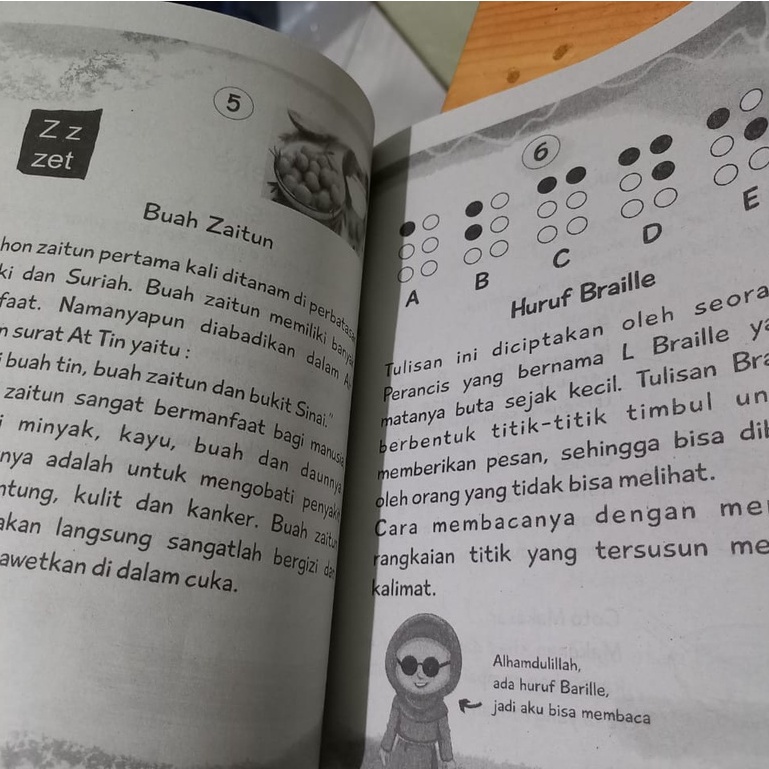 5
Z z
zet
Buah Zaitun
zaitun pertama kali ditanam di
dan Suriah. Buah zaitun memiliki
Namanyapun diabadikan dalam
surat At Tin yaitu :
buah tin, buah zaitun dan bukit Sinai."
zaitun sangat bermanfaat bagi
minyak, kayu, buah dan daunnya
adalah untuk mengobati
kulit dan kanker. Buah
langsung sangatlah bergizi
di dalam cuka.
6
A B C D E
Huruf Braille
Tulisan ini diciptakan oleh
Perancis yang bernama L Braille
matanya buta sejak kecil. Tulisan
berbentuk titik-titik timbul
memberikan pesan, sehingga bisa
oleh orang yang tidak bisa melihat.
Cara membacanya dengan
rangkaian titik yang tersusun
kalimat.
Alhamdulillah,
ada huruf Barille,
jadi aku bisa membaca